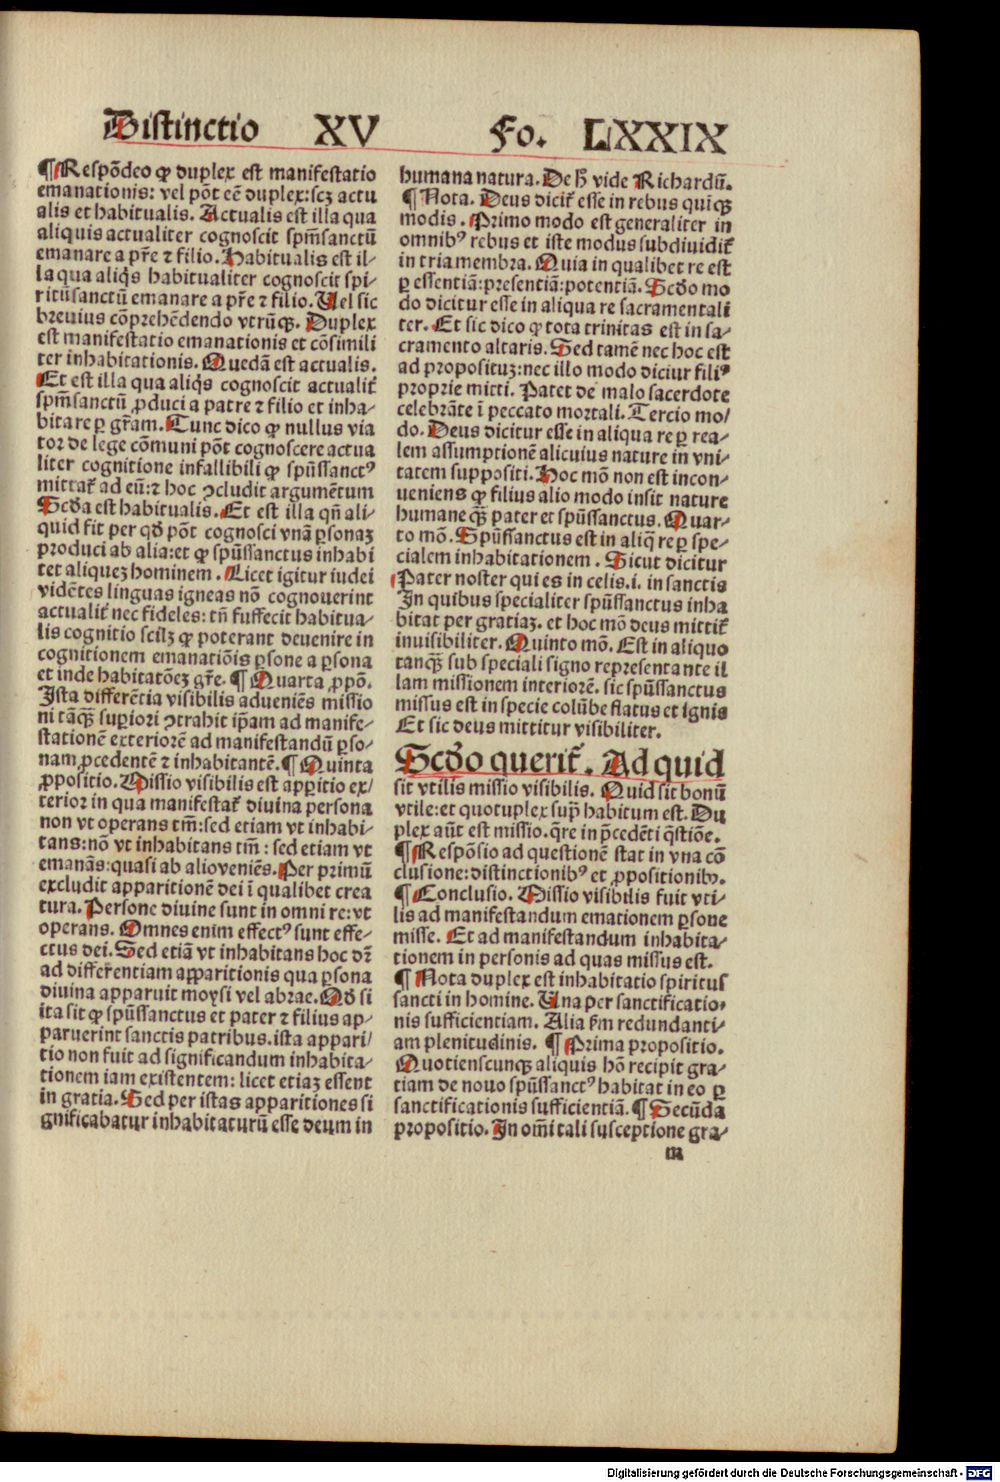 Distinctio XV Fo. LXXIX
¶ Respõdeo ꝙ duplex est manifestatio
emanationis: vel põt eẽ duplex:scꝫ actu
alis et habitualis. Actualis est illa qua
aliquis actualiter cognoscit spm̃sanctũ
emanare a pr̃e ⁊ filio. Habitualis est il⸗
la qua aliq̃s habitualiter cognoscit spi⸗
ritũsanctũ emanare a pr̃e ⁊ filio. Uel sic
breuius cõprehẽdendo vtrũqꝫ. Duplex
est manifestatio emanationis et cõsimili
ter inhabitationis. Quedã est actualis.
Et est illa qua aliq̃s cognoscit actualit̃
spm̃sanctũ ꝓduci a patre ⁊ filio et inha⸗
bitare ꝑ gr̃am. Tunc dico ꝙ nullus via
tor de lege cõmuni põt cognoscere actua
liter cognitione infallibili ꝙ spũssanctꝰ
mittat̃ ad eũ:⁊ hoc ꝯcludit argumẽtum
Scd̃a est habitualis. Et est illa qñ ali⸗
quid fit per qd̃ põt cognosci vnã ꝑsonaꝫ
produci ab alia:et ꝙ spũssanctus inhabi
tet aliqueꝫ hominem. Licet igitur iudei
vidẽtes linguas igneas nõ cognouerint
actualit̃ nec fideles: tñ suffecit habitua⸗
lis cognitio scilꝫ ꝙ poterant deuenire in
cognitionem emanatiõis ꝑsone a ꝑsona
et inde habitatõeꝫ gr̃e. ¶ Quarta ꝓpõ.
Ista differẽtia visibilis adueniẽs missio
ni tãqꝫ̃ suꝑiori ꝯtrahit ip̃am ad manife⸗
stationẽ exteriorẽ ad manifestandũ ꝑso⸗
nam ꝓcedentẽ ⁊ inhabitantẽ. ¶ Quinta
ꝓpositio. Missio visibilis est apꝑitio ex⸗
terior in qua manifestat̃ diuina persona
non vt operans tm̃:sed etiam vt inhabi⸗
tans:nõ vt inhabitans tm̃ : sed etiam vt
emanãs:quasi ab alio veniẽs. Per primũ
excludit apparitionẽ dei ĩ qualibet crea
tura. Persone diuine sunt in omni re:vt
operans. Omnes enim effectꝰ sunt effe⸗
ctus dei. Sed etiã vt inhabitans hoc dr̃
ad differentiam apparitionis qua ꝑsona
diuina apparuit moysi vel abrae. Qd̃ si
ita sit ꝙ spũssanctus et pater ⁊ filius ap⸗
paruerint sanctis patribus. ista appari⸗
tio non fuit ad significandum inhabita⸗
tionem iam existentem: licet etiaꝫ essent
in gratia. Sed per istas apparitiones si
gnificabatur inhabitaturũ esse deum in
humana natura. De h̃ vide Richardũ.
¶ Nota. Deus dicit̃ esse in rebus quĩqꝫ
modis. Primo modo est generaliter in
omnibꝰ rebus et iste modus subdiuidit̃
in tria membra. Quia in qualibet re est
ꝑ essentiã:presentiã:potentiã. Scd̃o mo
do dicitur esse in aliqua re sacramentali
ter. Et sic dico ꝙ tota trinitas est in sa⸗
cramento altaris. Sed tamẽ nec hoc est
ad propositꝫ:nec illo modo diciur filiꝰ
proprie mitti. Patet de malo sacerdote
celebrãte ĩ peccato mortali. Tercio mo⸗
do. Deus dicitur esse in aliqua re ꝑ rea⸗
lem assumptionẽ alicuius nature in vni⸗
tatem suppositi. Hoc mõ non est incon⸗
ueniens ꝙ filius alio modo insit nature
humane qꝫ̃ pater et spũssanctus. Quar⸗
to mõ. Spũssanctus est in aliq̃ re ꝑ spe⸗
cialem inhabitationem . Sicut dicitur
Pater noster qui es in celis.i. in sanctis
In quibus specialiter spũssanctus inha
bitat per gratiaꝫ. et hoc mõ deus mittit̃
inuisibiliter. Quinto mõ. Est in aliquo
tanqꝫ̃ sub speciali signo representante il
lam missionem interiorẽ. sic spũssanctus
missus est in specie colũbe flatus et ignis
Et sic deus mittitur visibiliter.
Scd̃o querit̃. Ad quid
sit vtilis missio visibilis. Quid sit bonũ
vtile:et quotuplex sup̃ habitum est. Du
plex aũt est missio. q̃re in p̃cedẽti q̃stiõe.
¶ Respõsio ad questionẽ stat in vna cõ
clusione:distinctionibꝰ et ꝓpositionibꝰ.
¶ Conclusio. Missio visibilis fuit vti⸗
lis ad manifestandum emationem ꝑsone
misse. Et ad manifestandum inhabita⸗
tionem in personis ad quas missus est.
¶ Nota duplex est inhabitatio spiritus
sancti in homine. Una per sanctificatio⸗
nis sufficientiam. Alia ẜm redundanti⸗
am plenitudinis. ¶ Prima propositio.
Quotienscunqꝫ aliquis hõ recipit gra⸗
tiam de nouo spũssanctꝰ habitat in eo ꝑ
sanctificationis sufficientiã. ¶ Secũda
propositio. In om̃i tali susceptione gra⸗
m
Digitalisierung gefördert durch die Deutsche Forschungsgemeinschaft - DFG